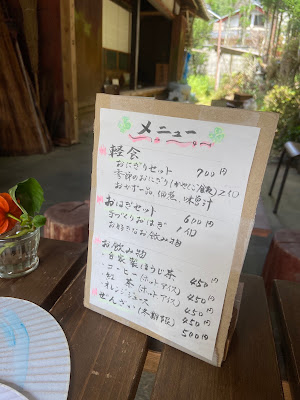 メニュー
軽食
おにぎりセット 700円
季節のおにぎり 2コ
おかず一品 佃煮、味噌汁
おはぎセット 600円
手づくりおはぎ 1コ
お好きなお飲み物
お飲み物
・自家製ほうじ茶 450円
・コーヒー(ホット・アイス) 450円
・紅茶(ホット・アイス) 450円
・オレンジジュース 450円
ぜんざい(冬期) 500円